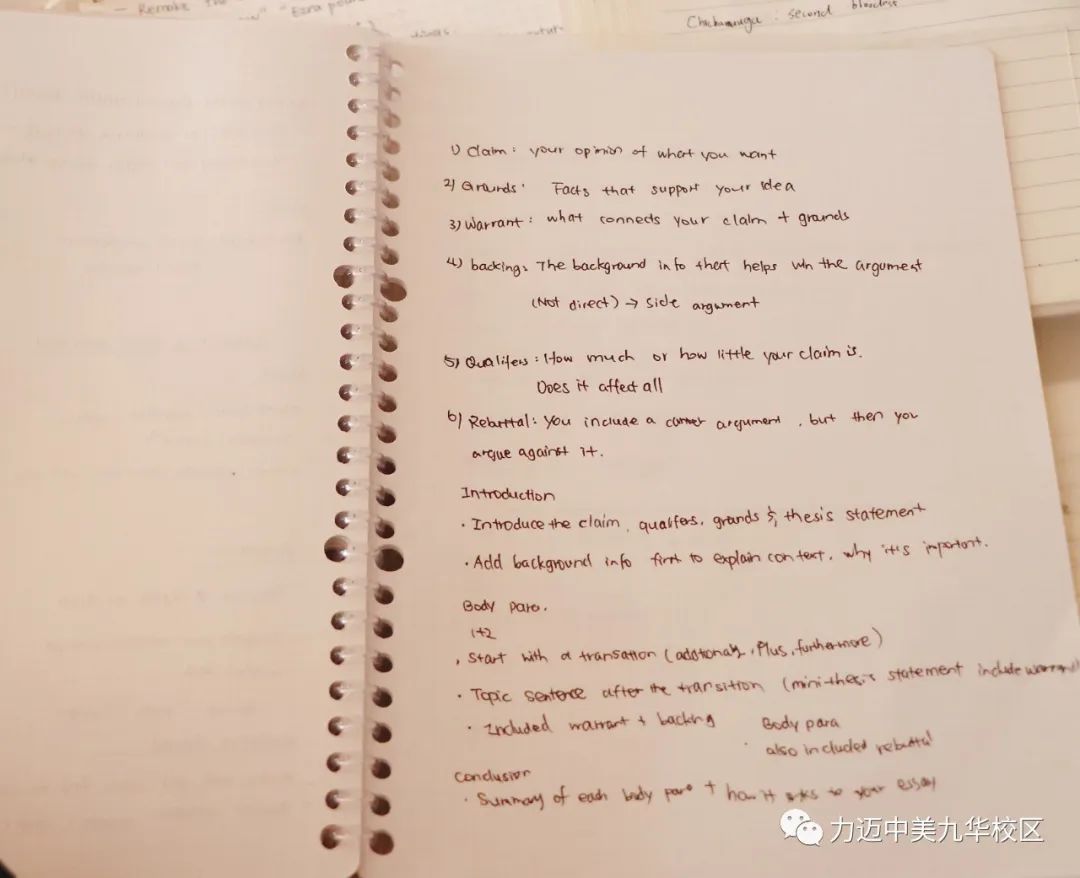 — Remake the
" "Ezra pound
Chickamauga : second bloodiest
1) Claim : your opinion of what you want
2) Grounds : Facts that support your idea
3) Warrant : what connects your claim + grounds
4) backing : The background info that helps win the argument
(Not direct) → side argument
5) Qualifers : How much or how little your claim is.
Does it affect all
6) Rebuttal : You include a counter argument , but then you
argue against it.
Introduction
· Introduce the claim, qualifers, grands & thesis statement
· Add background info first to explain context, why it's important.
Body para.
1+2
· Start with a transation (additionaly, Plus, furthermore)
· Topic sentence after the transition (mini-thesis statement include warrant
· Included warrant + backing
Body para
· also included rebuttal
Conclusion
· Summary of each body para + how it to your essay
力迈中美九华校区